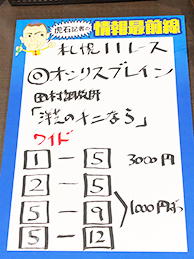 虎石記者の
情報最前線
札幌11レース
◎オンリスブレイン
田村調教師
「洋芝の十二なら」
ワイド
1－5 3000円
2－5
5－9 1000円
5－12